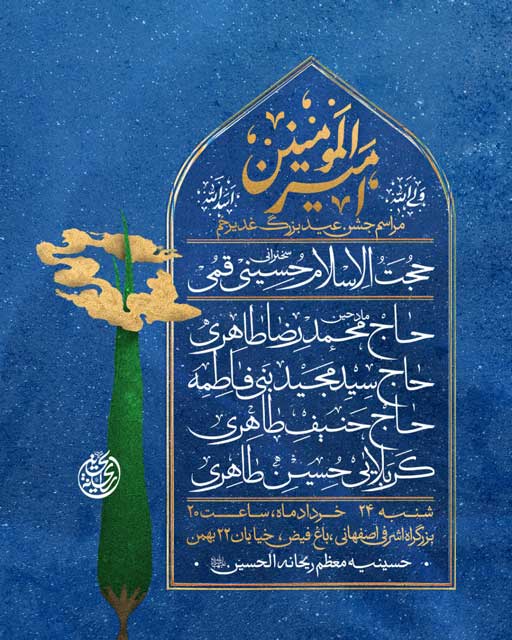 امیرالمومنین
ولی الله
اسدالله
مراسم جشن عید بزرگ غدیر خم
سخنرانی
حجت الاسلام حسینی قمی
مادحین
حاج محمدرضا طاهری
حاج سید مجید بنی فاطمه
حاج حنیف طاهری
کربلایی حسین طاهری
شنبه ۲۴ خردادماه، ساعت ۲۰
بزرگراه اشرفی اصفهانی، باغ فیض، خیابان ۲۲ بهمن
حسینیه معظم ریحانه الحسین